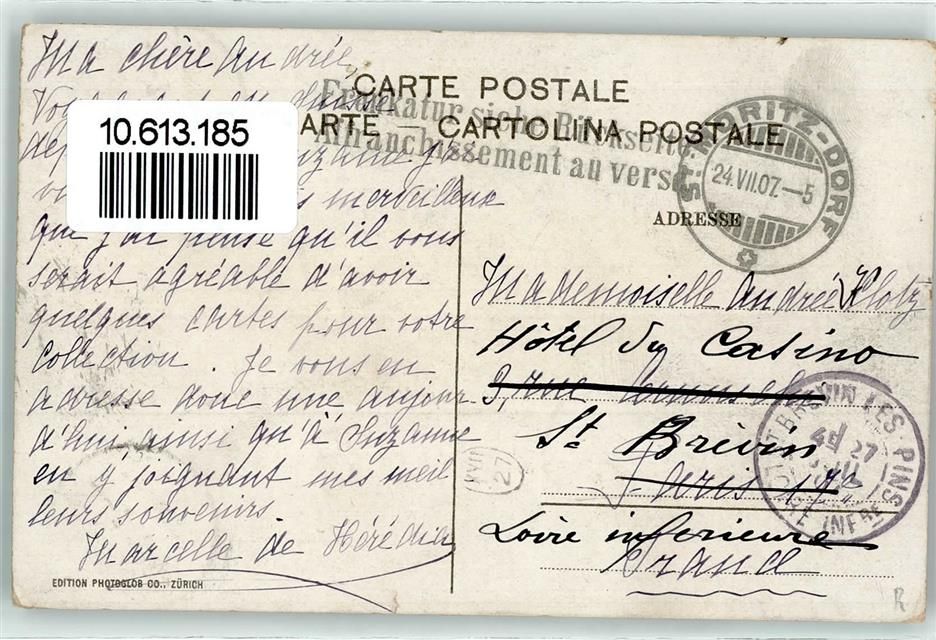 Ma chère Andrée,
CARTE POSTALE
Frankatur siehe Rückseite
ARTE — CARTOLINA POSTALE
Affranchissement au verso
10.613.185
ST. MORITZ-DORF
24.VII.07.—5
ADRESSE
merveilleux
que j'ai pensé qu'il vous
serait agréable d'avoir
quelques cartes pour votre
collection. Je vous en
adresse donc une aujour
d'hui, ainsi qu'à Suzanne
en y joignant mes meil
leurs souvenirs.
Marcelle de Hérédia
Mademoiselle Andrée Klotz
Hôtel du Casino
3, rue
St Brévin
Paris 17e
Loire inferieure
France
ST BREVIN LES PINS
27
LOIRE INFRE
EDITION PHOTOGLOB CO., ZÜRICH
R